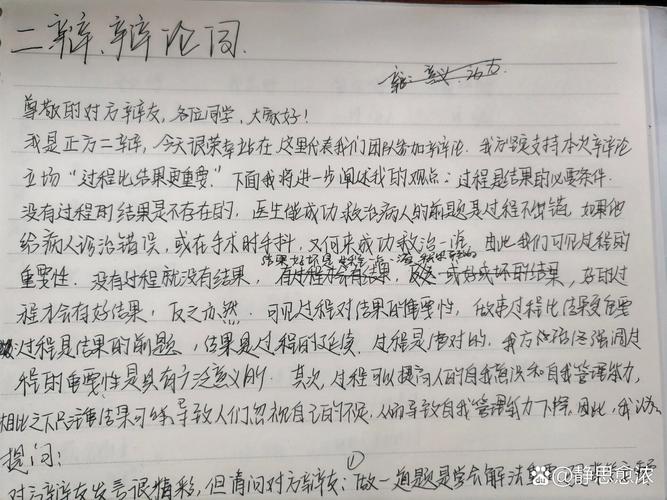 二辩、辩论词.
尊敬的对方辩友，各位同学，大家好！
我是正方二辩，今天很荣幸站在这里代表我们团队参加辩论。我方坚定支持本次辩论
立场“过程比结果更重要.”下面我将进一步阐述我的观点：过程是结果的必要条件.
没有过程的结果是不存在的，医生能成功救治病人的前提是过程不出错，如果他
给病人诊治错误，或在手术时手抖，又何来成功救治一说，由此我们可见过程的
重要性。没有过程就没有结果，有过程才会有结果，或好或坏的结果，好的过
程才会有好结果，反之亦然。可见过程对结果的重要性，故来过程比结果更重要
过程是结果的前题，结果是过程的延续，过程是绝对的，我方始终强调过
程的重要性是具有广泛意义的。其次，过程可以提高人的自我管理能力，
相比之下只注重结果可能导致人们忽视自己的不足，从而导致自我管理能力下降。因此，我认为
提问：①
对方辩友发言很精彩，但请问对方辩友：做一道题是学会解法重要
静思愈浓